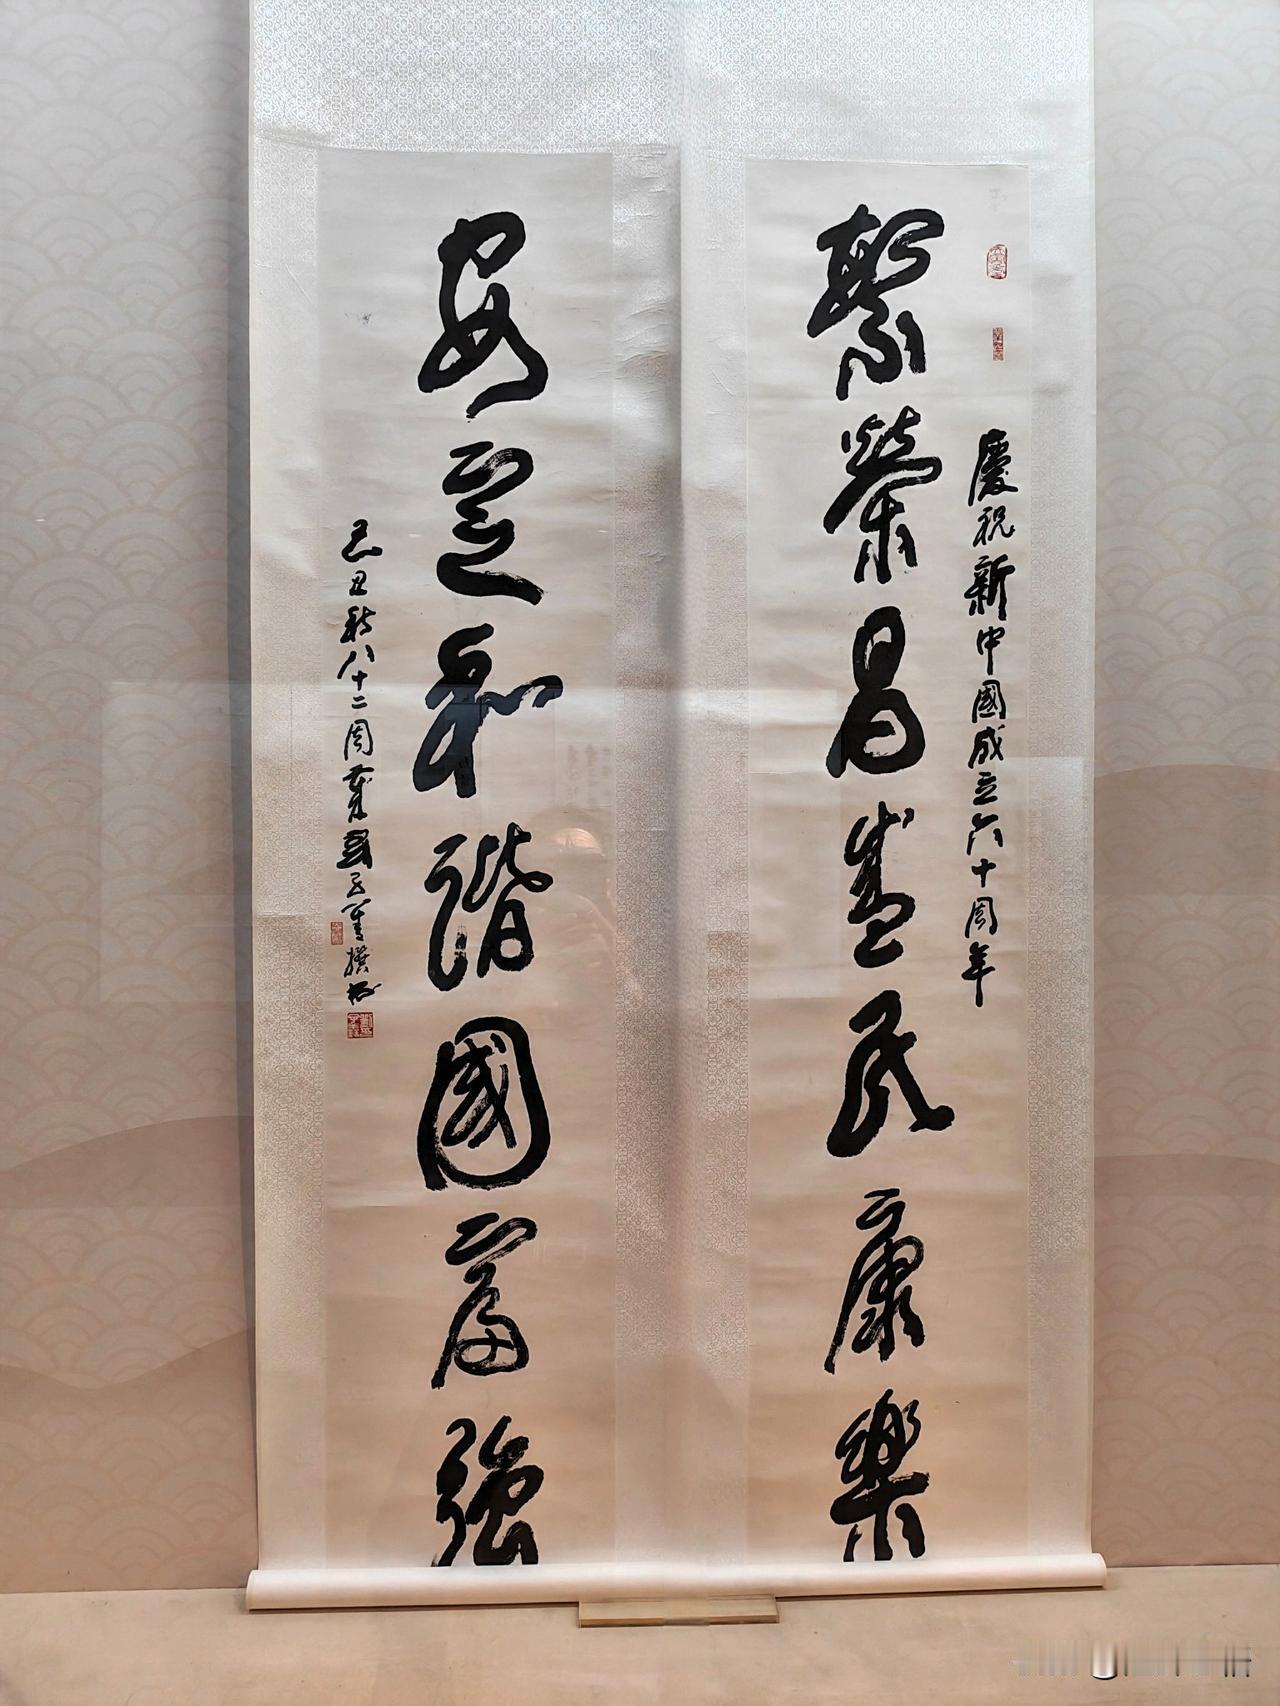 慶祝新中國成立六十周年
繁榮昌盛民康樂
安定和諧國富強
己丑秋八十二周歲